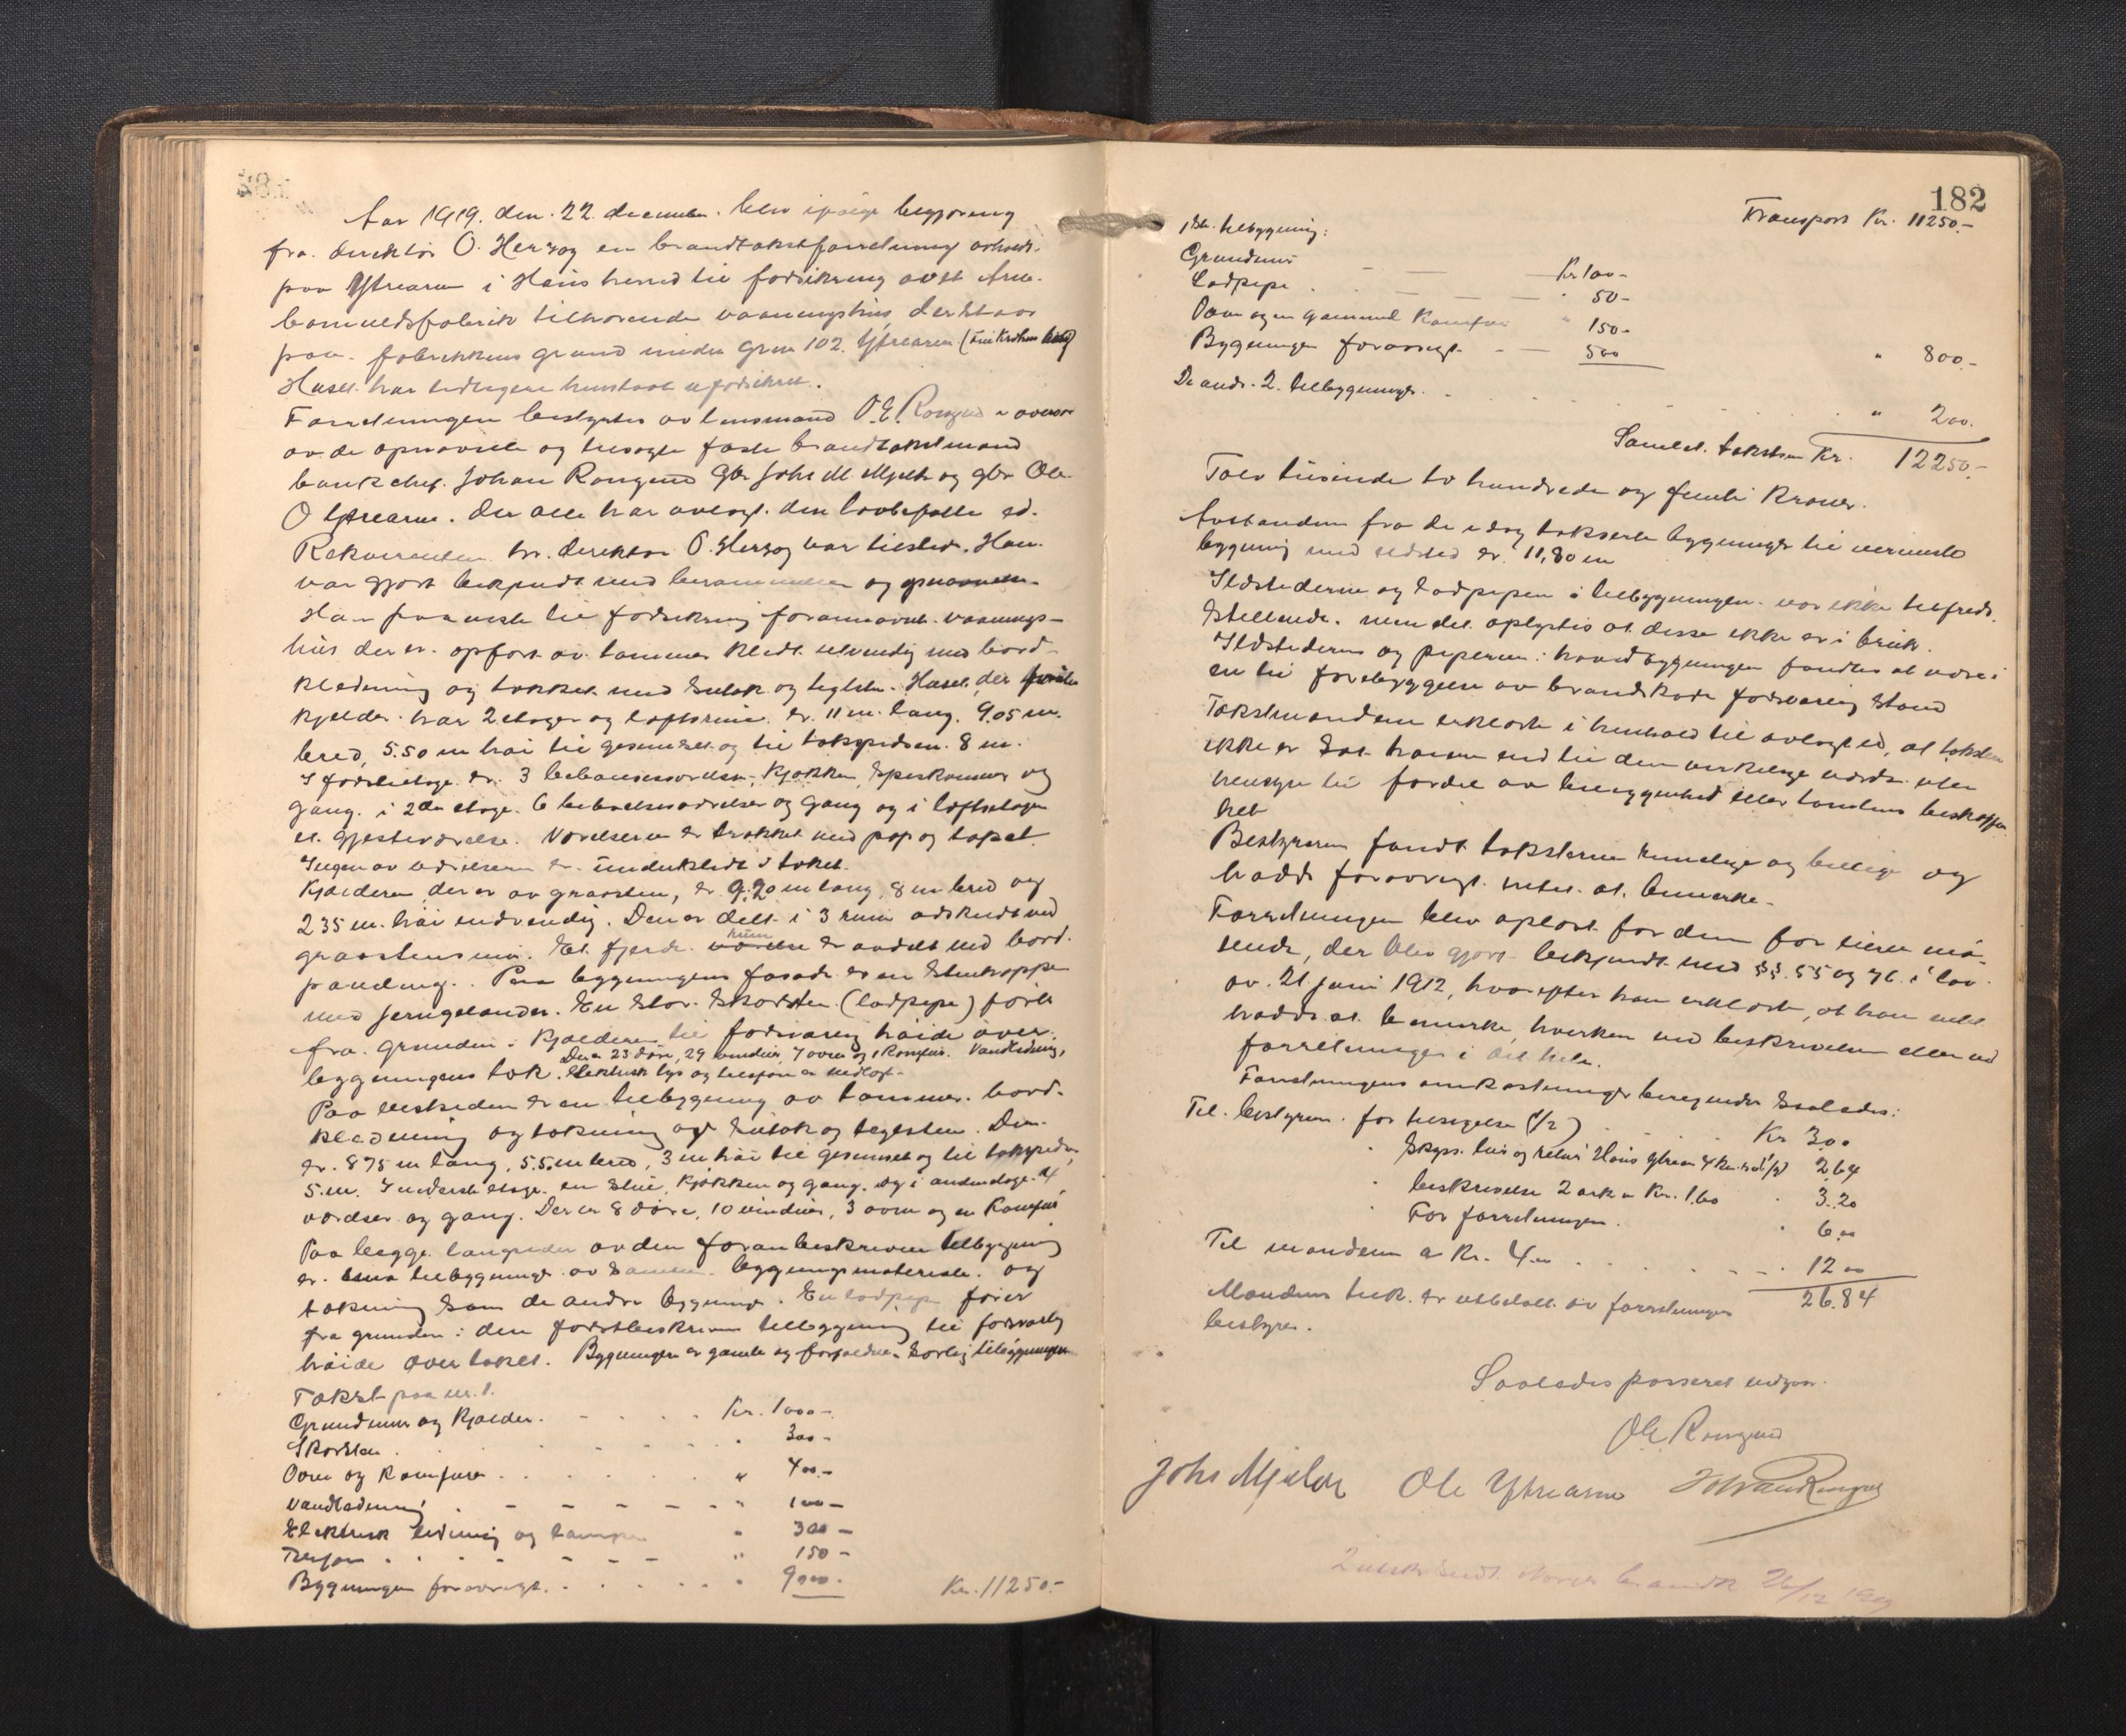 Aar 1919. den. 22. december. blev ifølge begjæring
fra. direktør O. Herzog en brandtakstforretning avholdt.
paa Ytrearne i Haus herred til forsikring av et Arne.
tilhørende vaaningshus, der staar
paa. fabrikkens grund under Gno 102. Ytrearne
Huset. har tidligere henstaat uforsikret.
Forretningen bestyrtes av lensmand O. E. Romgud
av de opnævnte og tilsagte faste brandtakstmænd
bankchef. Johan Romgud Gbr Johs M. Mjelde og gbr Ole.
O Ytrearne. der alle har avlagt. den lovbefalte ed.
Rekvirenten hr. direktør O. Herzog var tilstede. Han.
var gjort bekjendt med berammelsen og opnævnelsen
Han paaviste til forsikring forannævnte. vaanings-
hus der er. opført av tømmer klædt utvendig med bord-
klædning og tækket med sutak og teglsten. Huset, der
kjelder. har 2 etager og loftsrum. er. 11 m. lang. 9.05 m.
bred, 5.50 m høi til gesimset og til takspidsen. 8 m.
I første etage. er. 3 beboelsesværelser, Kjøkken, Spiskammer og
gang. i 2den etage. 6 beboelsesværelser og gang og i loftsetagen
et. gjesteværelse. Værelserne er trækket med pap og tapet
Ingen av værelserne er. underklædt i taket.
Kjælderen der er av graasten, er 9.20 m lang, 8 m bred og
2 35 m. høi indvendig. Den er delt i 3 rum adskildt ved
graastensmur. Et. fjerde. rum er avdelt med bord.
panding. Paa bygningens fasade er en Stentrappe
med jerngelænder. En stor. Skorsten (ladpipe) fører
fra. grunden i Kjælderen til forsvarlig høide over
Der er 23 døre, 29 vinduer, 7 ovne og 1 Komfur. Vandledning,
bygningens tak. Elektrisk lys og telefon er indlagt.
Paa vestsiden er en tilbygning av tømmer. bord-
klædning og tækning av sutak og teglsten. Den.
er. 8 75 m lang, 5.5 m bred, 3 m høi til gesimset og til takspidsen
5. m. I underste etage. en stue, Kjøkken og gang. og i anden etage. 4
værelser og gang. Der er 8 døre, 10 vinduer, 3 ovne og en Komfur
Paa begge. langsider av den foranbeskrevne tilbygning
er. smaa tilbygninger av samme. bygningsmateriale. og
tækning som de andre bygninger. En ladpipe fører
fra grunden i den førstbeskrevne tilbygning til forsvarlig
høide over taket. Bygningen er gamle og forfaldne. særlig tilbygningen
Takst paa nr. 1.
Grundmur og Kjælder. Kr. 1000-
Skorsten. " 300-
Ovne og komfurer. " 400.-
Vandledning. " 100-
Elektrisk ledning og lamper " 300-
Telefon " 150-
Bygningen forøvrigt. " 9000. Kr. 11250.-
182
Transport Kr. 11250.-
1ste. tilbygning:
Grundmur Kr 100-
Ladpipe. " 50-
Ovne og en gammel Komfur " 150-
Bygningen forøvrigt. 500 " 800.-
De andr. 2. tilbygninger. " 200.
Samlet. takstsum Kr. 12250.-
Tolv tusinde to hundrede og femti Kroner.
Avstanden fra de idag takserte bygninger til nærmeste
bygning med ildsted er 11,80 m
Ildstederne og ladpipen i tilbygningen. var ikke tilfreds.
stillende. men det. oplystes at disse ikke er i bruk.
Ildstederne og piperne i hovedbygningen fandtes at være i
en til forebyggelse av brandskade forsvarlig stand
Takstmændene erklærte i henhold til avlagt ed, at taksten
ikke er sat høiere end til den virkelige værdi uten
hensyn til fordel av beliggenhed eller tomtens beskaffen
het
Bestyreren fandt taksterne rimelige og billige og
hadde forøvrigt. intet. at. bemerke-
Forretningen blev oplæst for dem for eieren mø-
tende, der blev gjort bekjendt med §§. 55 og 76. i lov.
av. 21 juni 1912, hvorefter han erklærte, at han intet
hadde at bemerke, hverken ved beskrivelsen eller ved
forretningen i det hele.
Forretningens omkostninger beregnedes saaledes:
Til. bestyreren. for tilsigelse (1/2) Kr 3.00
" Skyss. hen og retur Haus Ytrearne 2.64
" beskrivelse 2 ark a Kr. 1.60 " 3.20
" For forretningen. " 6.00
Til mændene a Kr. 4.00 12 00
26.84
Mændenes tilk. er utbetalt av forretningens
bestyrer.
Saaledes passeret
O. E. Romgud
Johs Mjelde Ole Ytrearne Johan Romgud
Norges brandk 26/12 1919